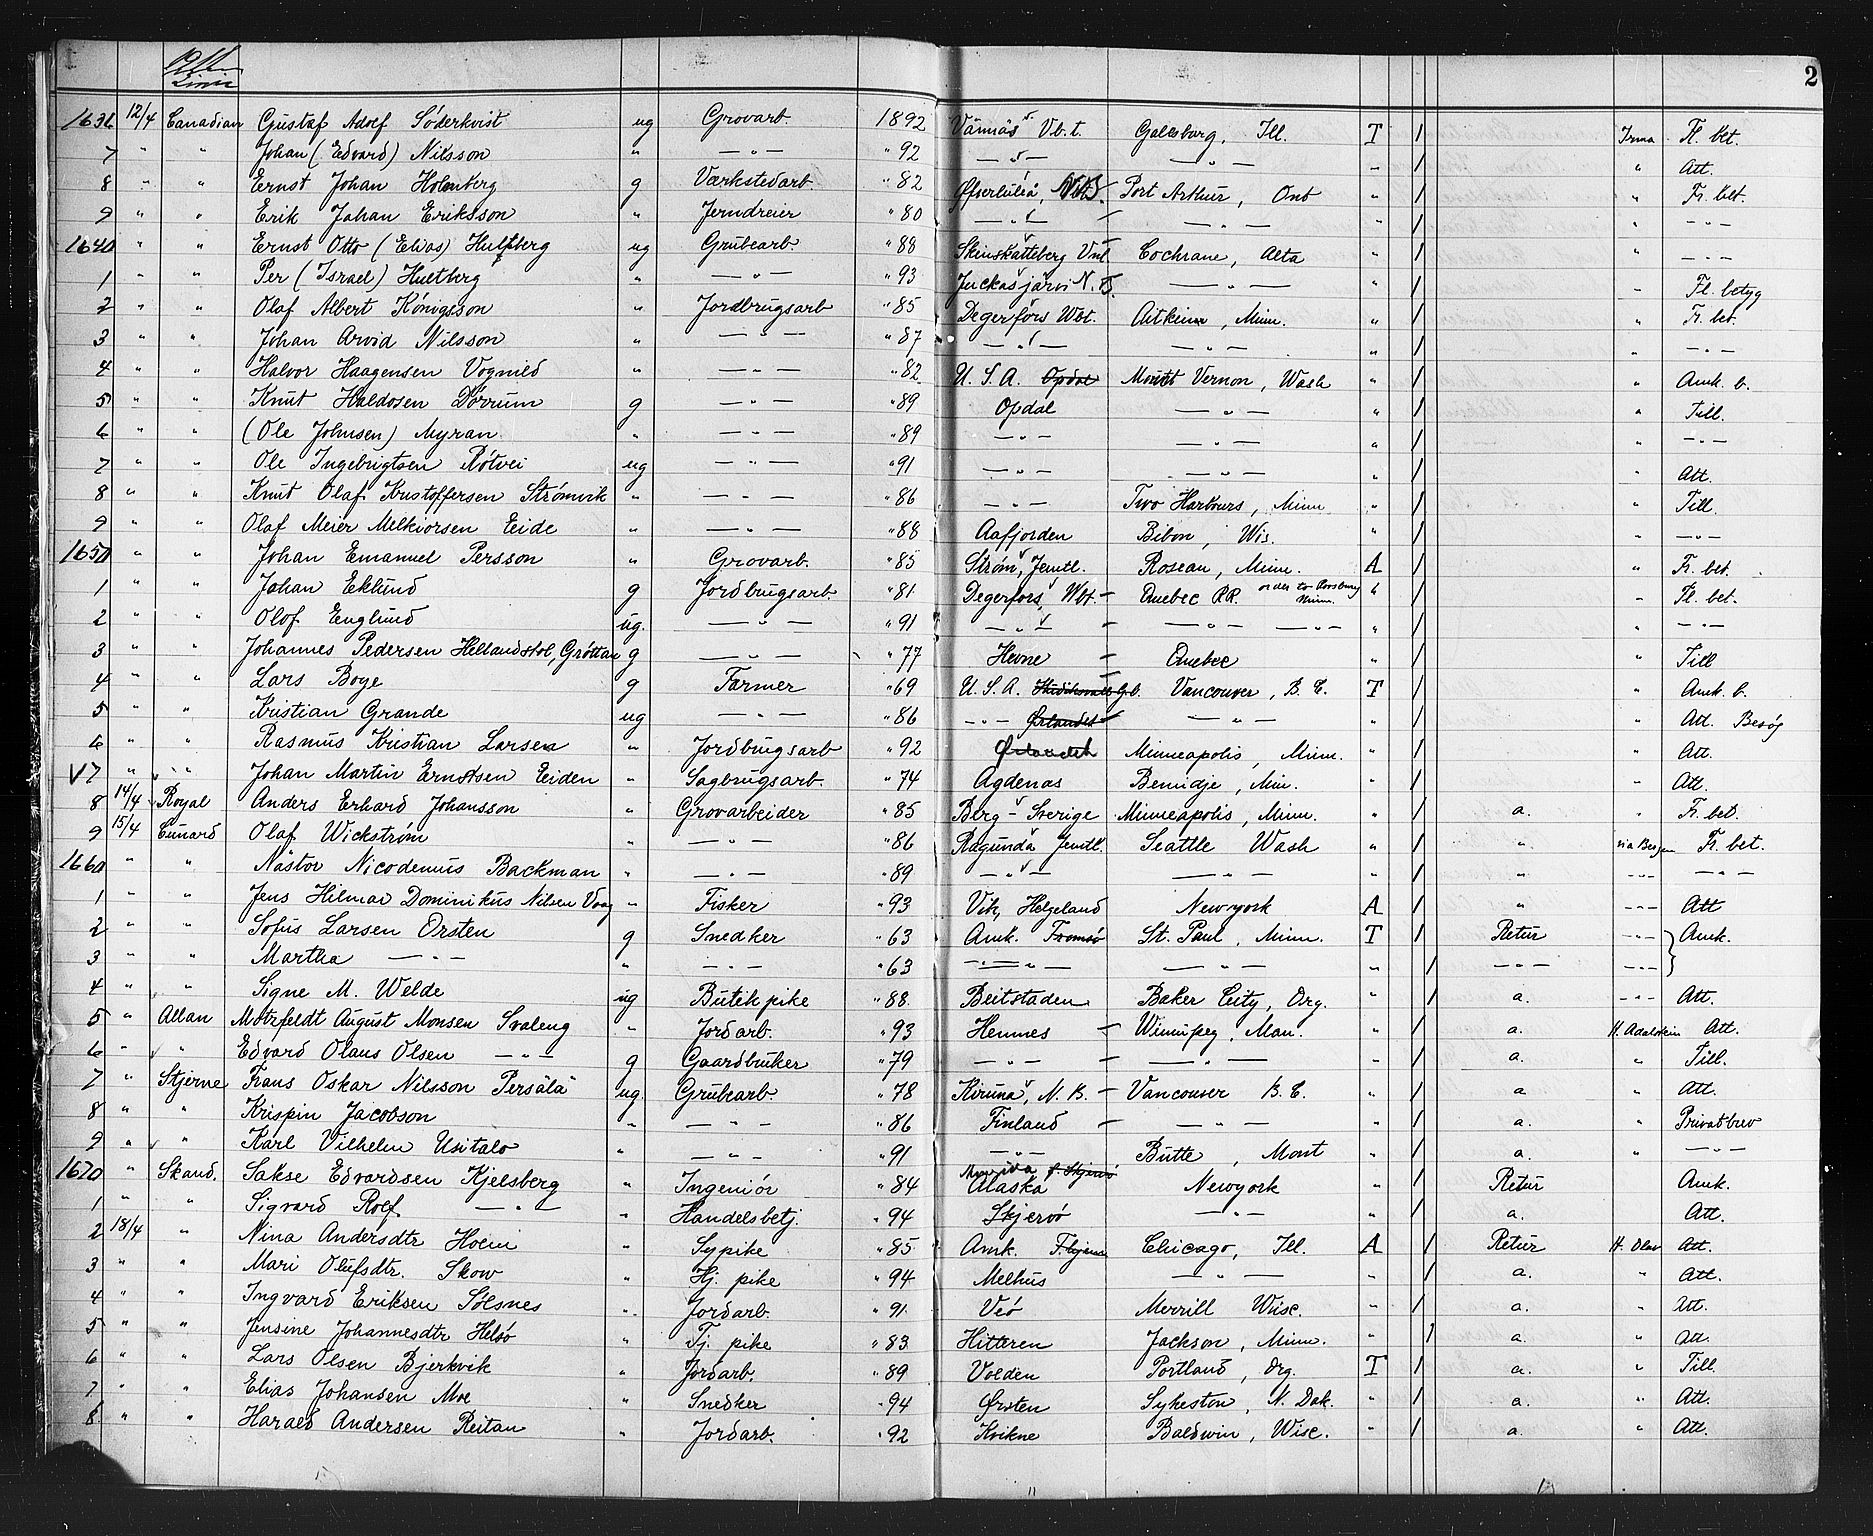 2
Linie
1636 12/4 Canadian Gustaf Adolf Söderkvist ug Grovarb. 1892 Vännäs Vb.t. Galesburg, Ill. T / Irma Fl. bet.
7 " " Johan (Edvard) Nilsson " — " — " 92 — " — — " — " / " Att.
8 " " Ernst Johan Holmberg g Værkstedarb " 82 Øfverluleå, Port Arthur, Ont " / " Fr. bet.
9 " " Erik Johan Eriksson " Jerndreier " 80 — " — — " — " / " — " —
1640 " " Ernst Otto (Elias) Hultberg ug Grubearb. " 88 Skinskatteberg Cochrane, Alta " / " — " —
1 " " Per (Israel) Hultberg " — " — " 93 Juckasjärvi N. B. — " — " / " Fl. betyg
2 " " Olaf Albert Königsson " Jordbrugsarb " 85 Degerfors Wbt. Aitkein, Minn. " / " Fr. bet.
3 " " Johan Arvid Nilsson " — " — " 87 — " — — " — " / " — " —
4 " " Halvor Haagensen Vognild " — " — " 82 U. S. A. Opdal Mount Vernon, Wash " / " Amk. b.
5 " " Knut Haldosen Dørrum g — " — " 89 Opdal — " — " / " Till.
6 " " (Ole Johnsen) Myran " — " — " 89 — " — — " — " / " — " —
7 " " Ole Ingebrigtsen Rötvei ug — " — " 91 — " — — " — " / " Att.
8 " " Knut Olaf Kristoffersen Strømvik " — " — " 86 — " — Two Harbours, Minn " / " Till.
9 " " Olaf Meier Melkiorsen Eide " — " — " 88 Aafjorden Bibon, Wis. " / " — " —
1650 " " Johan Emanuel Persson " Grovarb. " 85 Strøm, Jemtl. Roseau, Minn. A / " Fr. bet.
1 " " Johan Eklund g Jordbrugsarb. " 81 Degerfors, Wbt. — Quebec RR. order to Minn. " / " Fl. bet.
2 " " Olof Englund ug. — " — " 91 — " — — " — — " — " / " — " —
3 " " Johannes Pedersen Hellandstol, Grøttan g — " — " 77 Hevne — Quebec " / " Till
4 " " Lars Boye g Farmer " 69 U. S. A. Vancouver, B. C. T / " Amk. b.
5 " " Kristian Grande ug — " — " 86 — " — Ørlandet — " — " / " Att. Besøg
6 " " Rasmus Kristian Larsen " Jordbrugsarb " 92 Ørlandet Minneapolis, Minn. " / " Att.
V 7 " " Johan Martin Ernstsen Eiden " Sagbrugsarb. " 74 Agdenas Bemidje, Min. " / Att.
8 14/4 Royal Anders Erhard Johansson " Grovarbeider " 85 Berg - Sverige Minneapolis, Minn. " / a. " Fr. bet.
9 15/4 Cunard Olaf Wickström " — " — " 86 Ragunda Jemtl. Seattle Wash " / " via Bergen Fr. bet.
1660 " " Nästor Nicodemus Backman " — " — " 89 — " — — " — " / " — " — — " —
1 " " Jens Hilmar Dominikus Nilsen Vaag " Fisker " 93 Vik, Helgeland Newyork A / " — " — Att
2 " " Sofus Larsen Orsten g Snedker " 63 Amk. Tromsø St. Paul, Minn. T / Retur — " — Amk.
3 " " Martha — " — " — " — " 63 — " — — " — " / — " — — " —
4 " " Signe M. Welde ug Butikpike " 88 Beitstaden Baker City, Org. " / a. — " — Att.
5 " Allan Motzfeldt August Monsen Svaleng " Jordarb. " 93 Hennes — Winnipeg, Man. " / a. H. Adalstein Att.
6 " " Edvard Olaus Olsen — " — g Gaardbruker " 79 — " — — " — " / a. " Till.
7 " Stjerne Frans Oskar Nilsson Persälä ug. Grubearb. " 78 Kiruna, N. B. — Vancouver B. C. " / a " Att.
8 " " Krispin Jacobson " — " — " 86 Finland — — " — " / a. " Privatbrev
9 " " Karl Vilhelm Usitalo " — " — " 91 — " — Butte, Mont " / a. " — " —
1670 " Skand. Sakse Edvardsen Kjelsberg " Ingeniör " 84 Alaska f. Skjervø Newyork " / Retur Amk.
1 " " Sigvard Rolf — " — " Handelsbetj. " 94 Skjervö — " — " / a. Att.
2 18/4 " Nina Andersdtr Hoem " Sypike " 85 Amk. Chicago, Ill. A / Retur H. Olav Att.
3 " " Mari Olufsdtr. Skow " Hj. pike " 94 Melhus — " — " / a. " Att.
4 " " Ingvard Eriksen Sölsnes " Jordarb. " 91 Veö Merrill Wisc. " / a. " Att.
5 " " Jensine Johannesdtr Helsö " Tj. pike " 83 Hitteren Jackson, Minn. " / a. " Att.
6 " " Lars Olsen Bjerkvik " Jordarb. " 89 Volden Portland, Org. T / a. " Till.
7 " " Elias Johansen Moe " Snedker " 94 Ørsten Sykeston, N. Dak. " / a. " Att.
8 " " Harald Andersen Reitan " Jordarb. " 92 Kvikne Baldwin, Wisc. " / a. " Att.